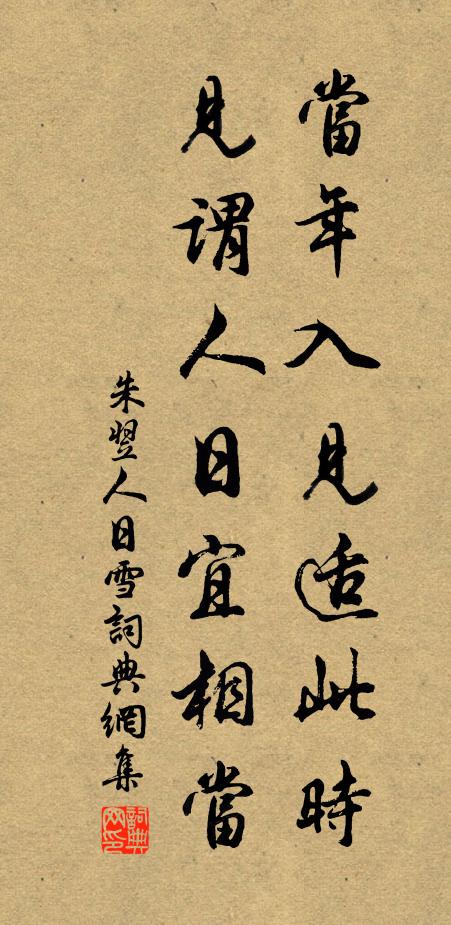 當年入見适此時
見謂人日宜相當
朱翌人日雪詞典網集
詞典网印